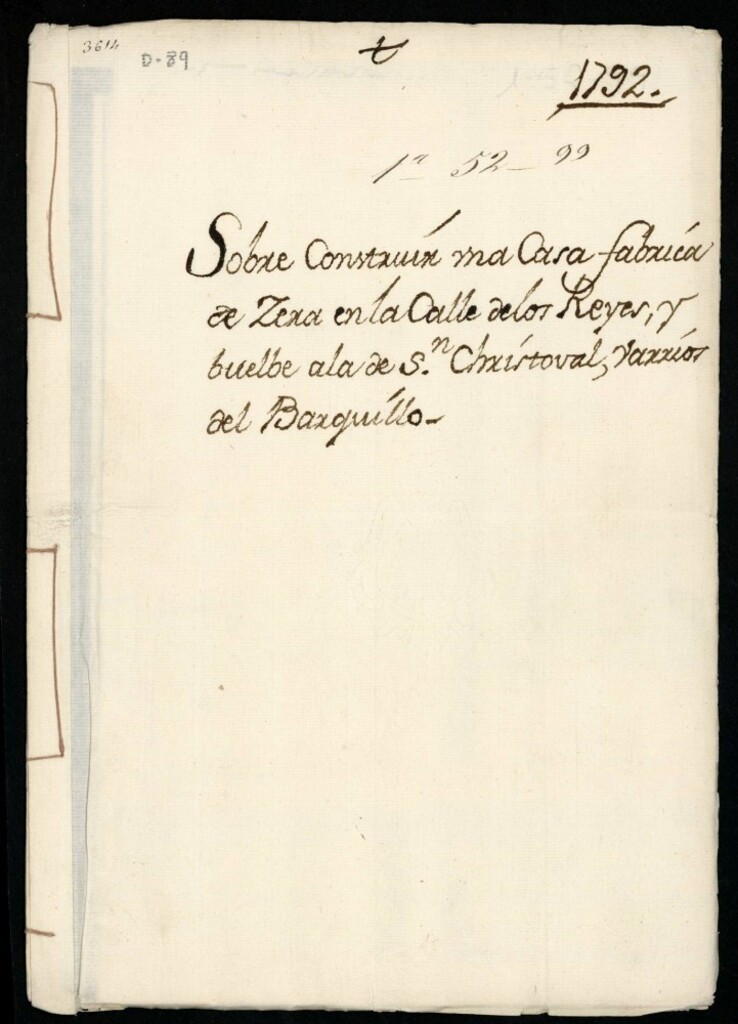 3614
D-89
t
1792.
1ª 52-99
Sobre Construír una Casa fabrica
de Zera en la Calle de los Reyes, y
buelbe ala de S.n Christoval, varrios
del Barquíllo-